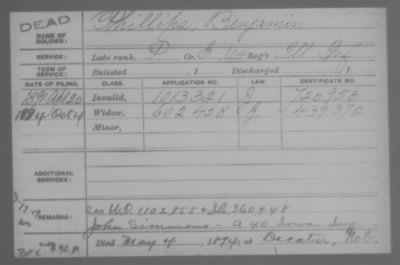 DEAD
NAME OF SOLDIER: Phillips, Benjamin
SERVICE: Late rank, P Co. E, Reg't Ill Inf
TERM OF SERVICE: Enlisted , 1 Discharged , 1
DATE OF FILING. CLASS. APPLICATION NO. LAW. CERTIFICATE NO.
20 Invalid, 1013321 720953
Oct 4 Widow, 602428 439370
Minor,
ADDITIONAL SERVICES:
REMARKS: W.O. 402855 & 360,448
John Simmons - A 40 Iowa Inf
Died May 4, 1894, at Decatur, Neb.